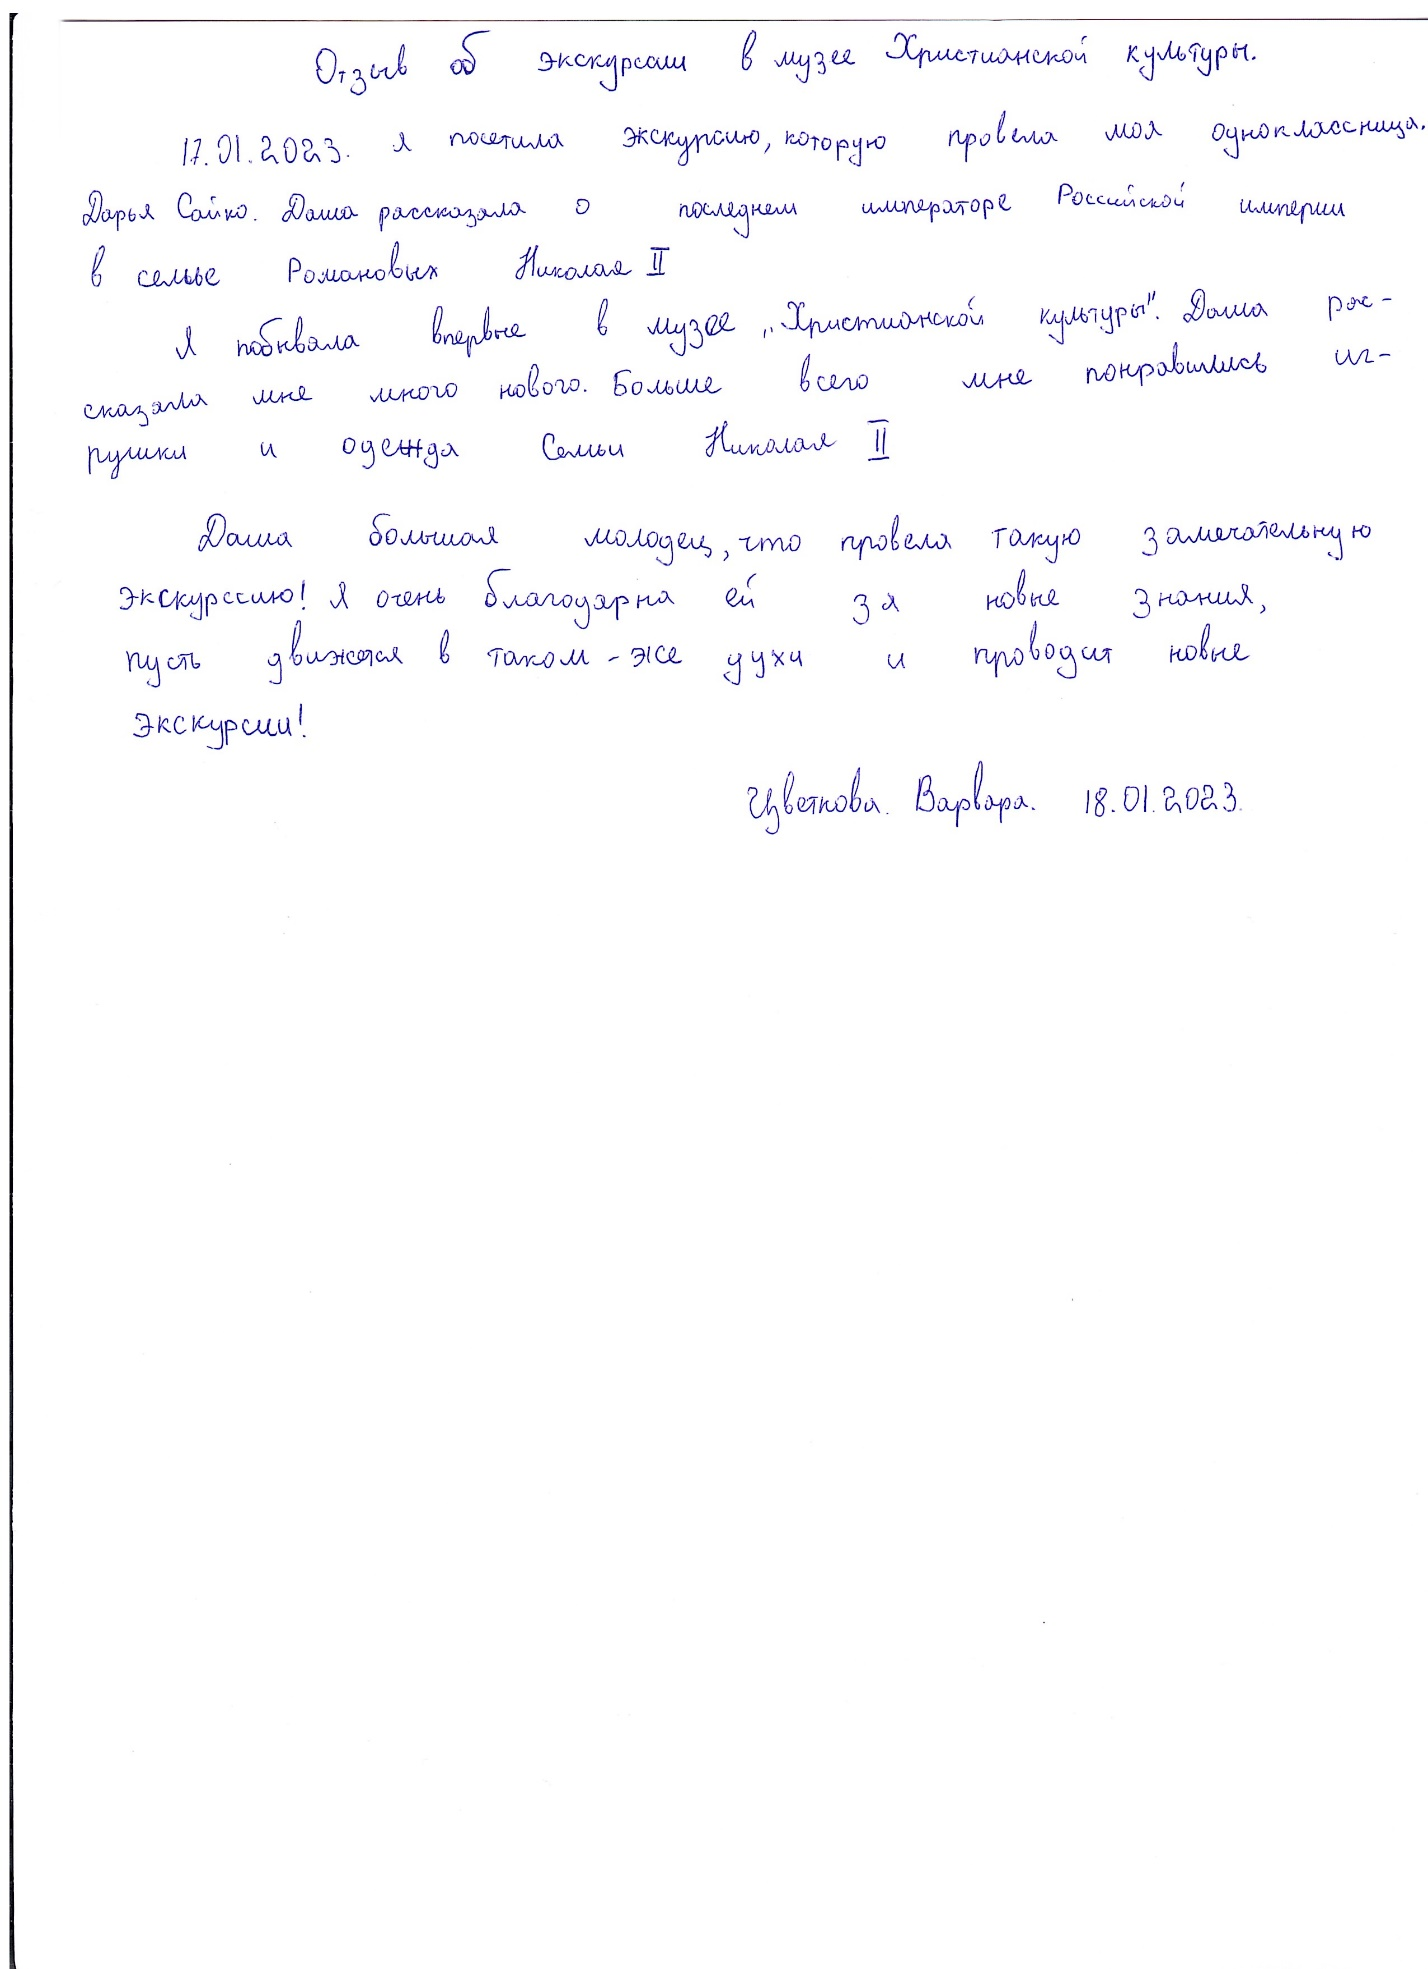 Отзыв об экскурсии в музее Христианской культуры.
17.01.2023. я посетила экскурсию, которую провела моя одноклассница.
Дарья Сайко. Даша рассказала о последнем императоре Российской империи
в семье Романовых Николая II
Я побывала впервые в музее „Христианской культуры". Даша рас-
сказала мне много нового. Больше всего мне понравились иг-
рушки и одежда Семьи Николая II
Даша большая молодец, что провела такую замечательную
экскурссию! Я очень благодарна ей за новые знания,
пусть движется в таком-же духи и проводит новые
экскурсии!
Цветкова. Варвара. 18.01.2023.